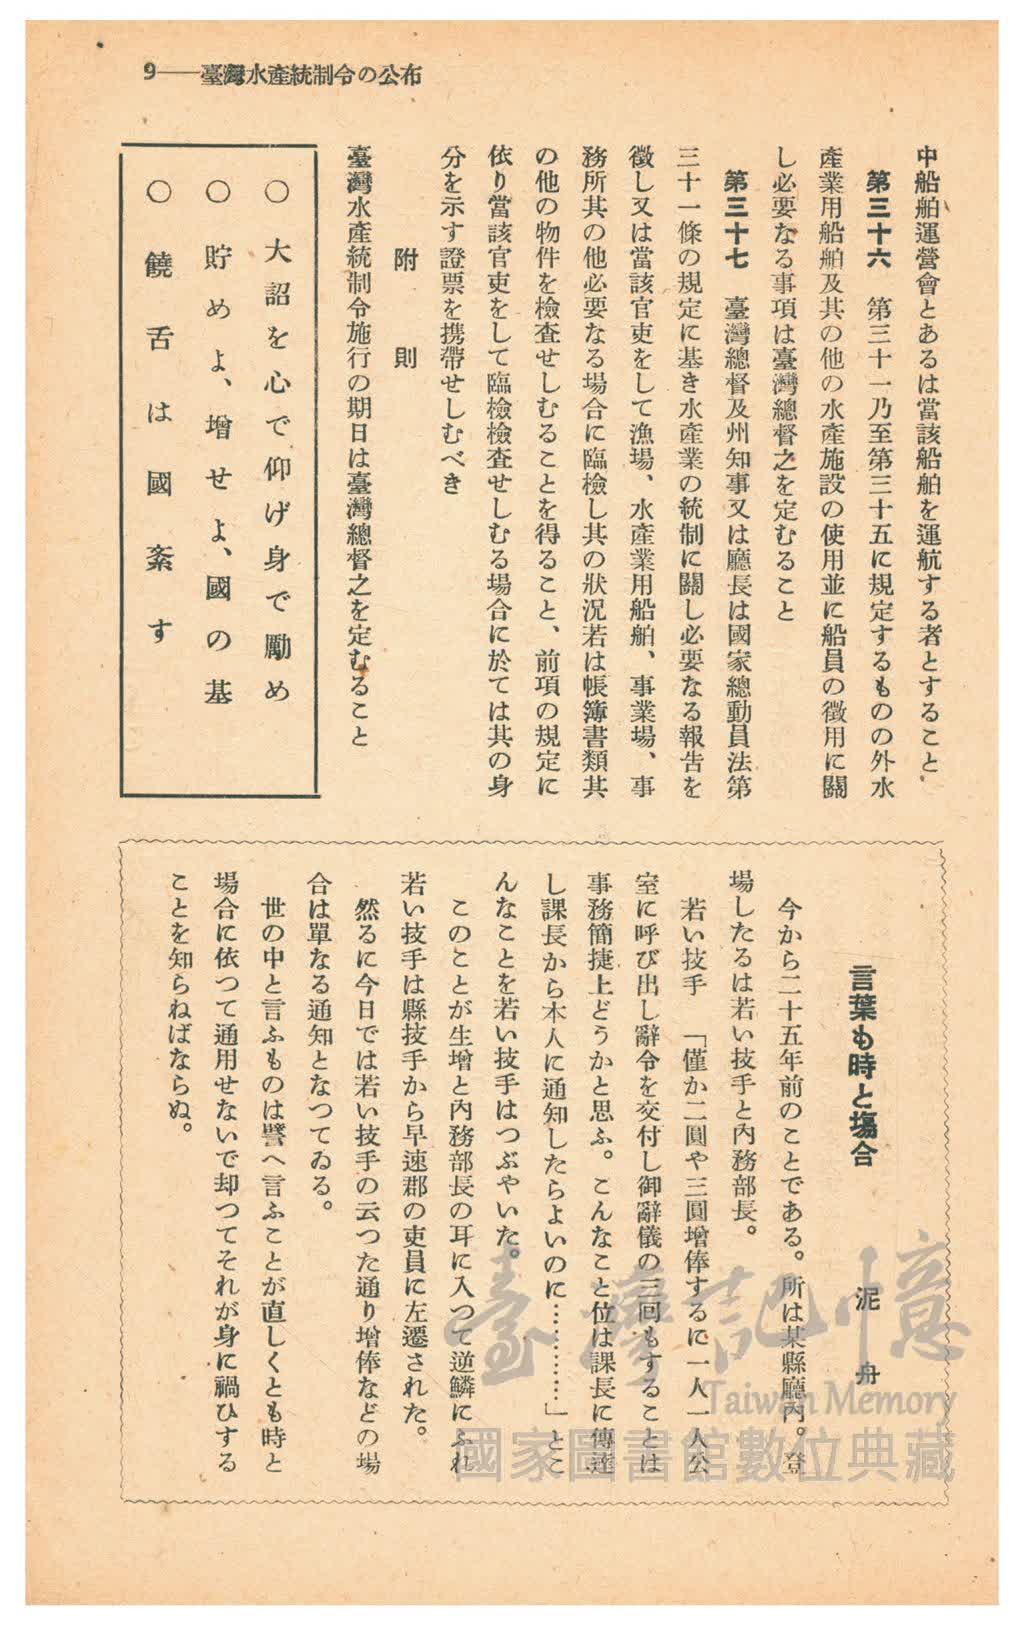 9——臺灣水產統制令の公布
中船舶運營會とあるは當該船舶を運航する者とすること
第三十六　第三十一乃至第三十五に規定するものの外水
產業用船舶及其の他の水產施設の使用並に船員の徵用に關
し必要なる事項は臺灣總督之を定むること
第三十七　臺灣總督及州知事又は廳長は國家總動員法第
三十一條の規定に基き水產業の統制に關し必要なる報告を
徵し又は當該官吏をして漁場、水產業用船舶、事業場、事
務所其の他必要なる場合に臨檢し其の狀況若は帳簿書類其
の他の物件を檢査せしむることを得ること、前項の規定に
依り當該官吏をして臨檢檢査せしむる場合に於ては其の身
分を示す證票を携帶せしむべき
附則
臺灣水產統制令施行の期日は臺灣總督之を定むること
○大詔を心で仰げ身で勵め
○貯めよ、增せよ、國の基
○饒舌は國紊す
言葉も時と場合
泥舟
今から二十五年前のことである。所は某縣廳內。登
場したるは若い技手と內務部長。
若い技手　「僅か二圓や三圓增俸するに一人一人公
室に呼び出し辭令を交付し御辭儀の三囘もすることは
事務簡捷上どうかと思ふ。こんなこと位は課長に傳達
し課長から本人に通知したらよいのに…………」とこ
んなことを若い技手はつぶやいた。
このことが生增と內務部長の耳に入つて逆鱗にふれ
若い技手は縣技手から早速郡の吏員に左遷された。
然るに今日では若い技手の云つた通り增俸などの場
合は單なる通知となつてゐる。
世の中と言ふものは譬へ言ふことが直しくとも時と
場合に依つて通用せないで却つてそれが身に禍ひする
ことを知らねばならぬ。
臺灣記憶
Taiwan Memory
國家圖書館數位典藏